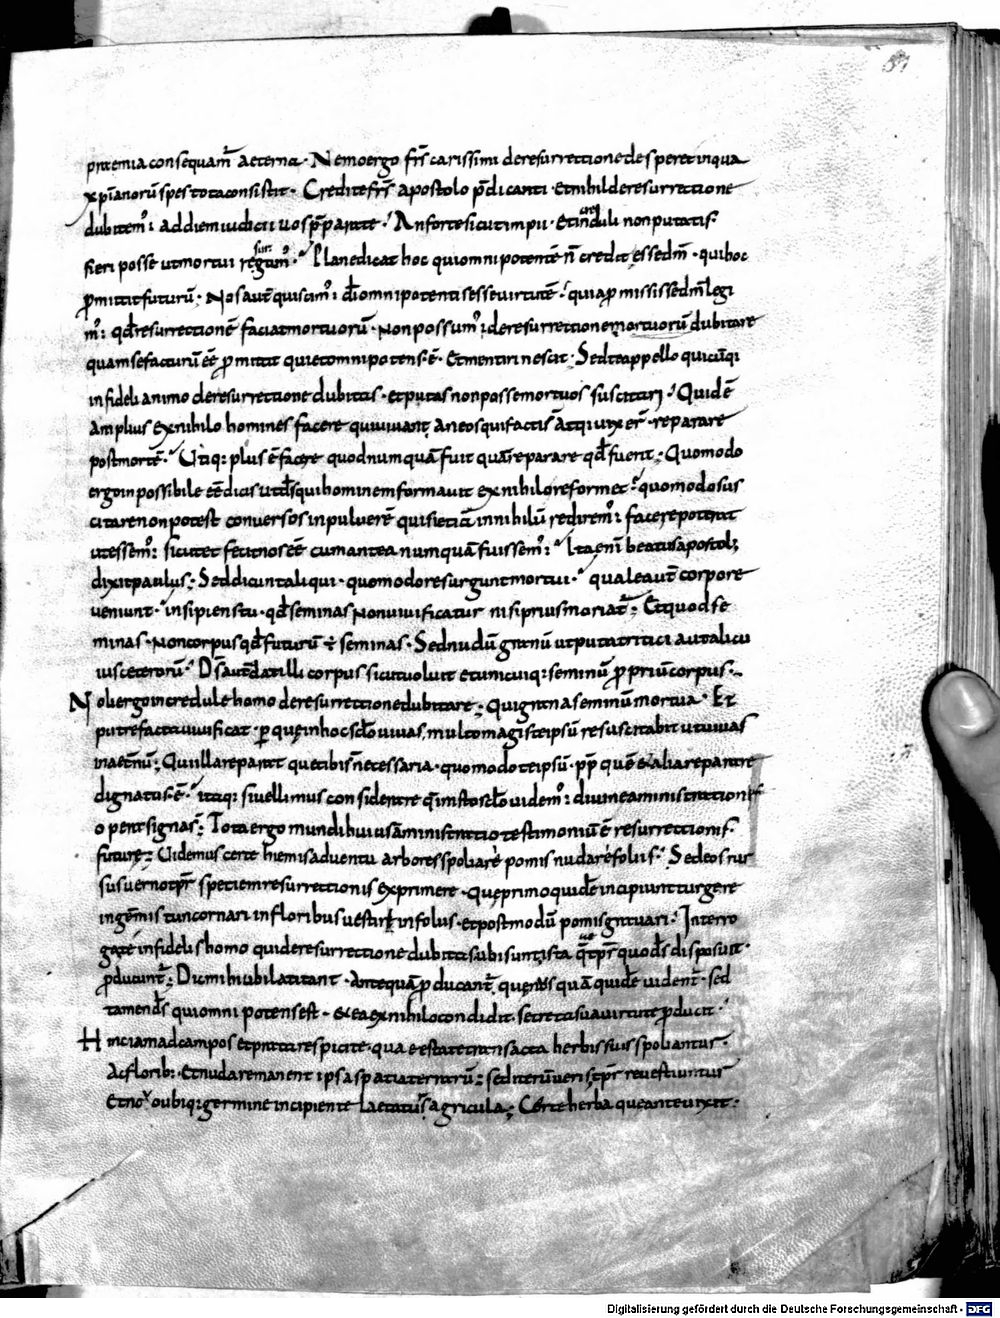 57
praemia consequam̄ aeterna · Nemo ergo fr̄s carissimi de resurrectione desperet in qua
xp̄ianorū spes tota consistit · Credite fr̄s apostolo p̄dicanti · et nihil de resurrectione
dubitem᷒ : ad diem iudicii uos p̄parate · An forte sicut impii · et increduli non putatis
fieri posse ut mortui resurgam᷒ · Plane dicat hoc qui omnipotentē n̄ credit esse dm̄ · qui hoc
p̄mittit futurū · Nos autē qui scim᷒ : dī omnipotentis esse uirtutē · quia p̄misisse dm̄ legi
m᷒ : qđ resurrectionē faciat mortuorū · Non possum᷒ : de resurrectione mortuorū dubitare
quam se facturū ēē p̄mittit qui et omnipotens · ē · Et mentiri nescit · Sed te appello quicūq;
infideli animo de resurrectione dubitas · et putas non posse mortuos suscitari · Quid ē
amplius ex nihilo homines facere qui uiuant, an eos qui factis atq; uixer̄ · reparare
post mortē · Utiq; plus ē facere quod numquā fuit quā reparare qđ fuerit · Quomodo
ergo inpossibile ēē dicis ut ds̄ qui hominem formauit ex nihilo reformet · quomodo sus
citare non potest conuersos in puluerē qui si etiā in nihilū redirem᷒ : facere poterat
ut essem᷒ : sicut et fecit nos ēē cum antea numquā fuissem᷒ : Ita eni beatus apostol;
dixit paulus; Sed dicunt aliqui · quomodo resurgunt mortui · quale autē corpore
ueniunt · insipiens tu · qđ seminas non uiuificatur nisi prius moriat᷒ ; Et quod se
minas · Non corpus qđ futurū ē seminas · Sed nudū granū ut puta tritici aut alicu
ius ceterorū · Ds̄ autē dat illi corpus sicut uoluit et unicuiq; seminū p̄priū corpus ·
Noli ergo incredule homo de resurrectione dubitare; Qui grana seminū mortua · Et
putrefacta uiuificat · per quę in hoc scl̄o uiuas, multo magis te ipsū resuscitabit ut uiuas
in aetn̄ū; Qui illa reparat que tibi s̄ necessaria · quomodo te ipsū · pp̄ quē et alia reparare
dignatus · ē · itaq; si uellimus considerare q̄m̄ isto scl̄o uidem᷒ : diuine aministrationis
opera signas; Tota ergo mundi huius āministratio testimoniū ē resurrectionis
future; Uidemus certe hiemis aduentu arbores spoliare pomis nudare foliis · Sed eos rur
sus uerno tp̄r speciem resurrectionis exprimere · Quę primo quidē incipiunt turgere
in gemmis tunc ornari in floribus uestiri in foliis · et postmodū pomis grauari · Interro
gate infidelis homo qui de resurrectione dubitas ubi sunt ista q̄ tp̄r quo ds̄ disposuit ·
p̄ducunt᷒ ; Dum ibi ubi latitant · Antequā p̄ducant᷒ quidē uident᷒ · sed
tamen ds̄ qui omnipotens est · et ea ex nihilo condidit, secreta sua uirtute p̄ducit ·
Hinc iam ad campos et prata respicite · qua estate transacta herbis suis spoliantur ·
Ac florib; · Et nuda remanent ipsa spatia terrarū; sed iterū ueris tp̄r reuestiuntur
Et nouo ubiq; germine incipiente laetatur agricula; Certe herba que ante uixit ·
Digitalisierung gefördert durch die Deutsche Forschungsgemeinschaft · DFG